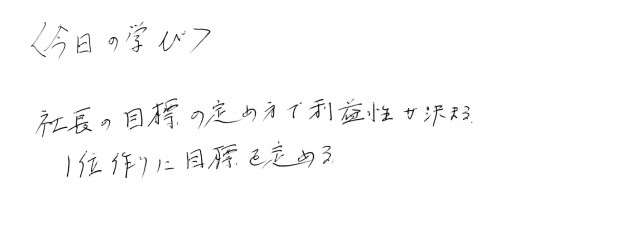 〈今日の学び〉
社長の目標の定め方で利益性が決まる
1位作りに目標を定める